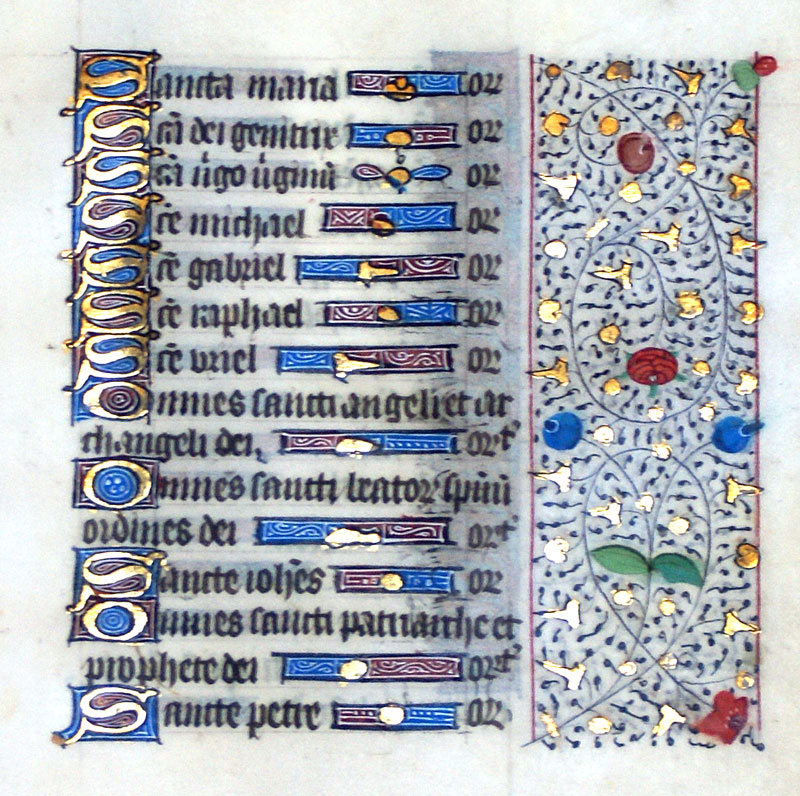 Sancta maria or
Scā dei genitrix or
Scā v̄go v̄ginū or
Scē michael or
Scē gabriel or
Scē raphael or
Scē vriel or
Omnes sancti angeli et ar
changeli dei, orͭ
Omnes sancti beatorꝝ spūū
ordines dei orͭ
Sancte ioh̄es or
Omnes sancti patriarche et
prophete dei orͭ
Sancte petre or